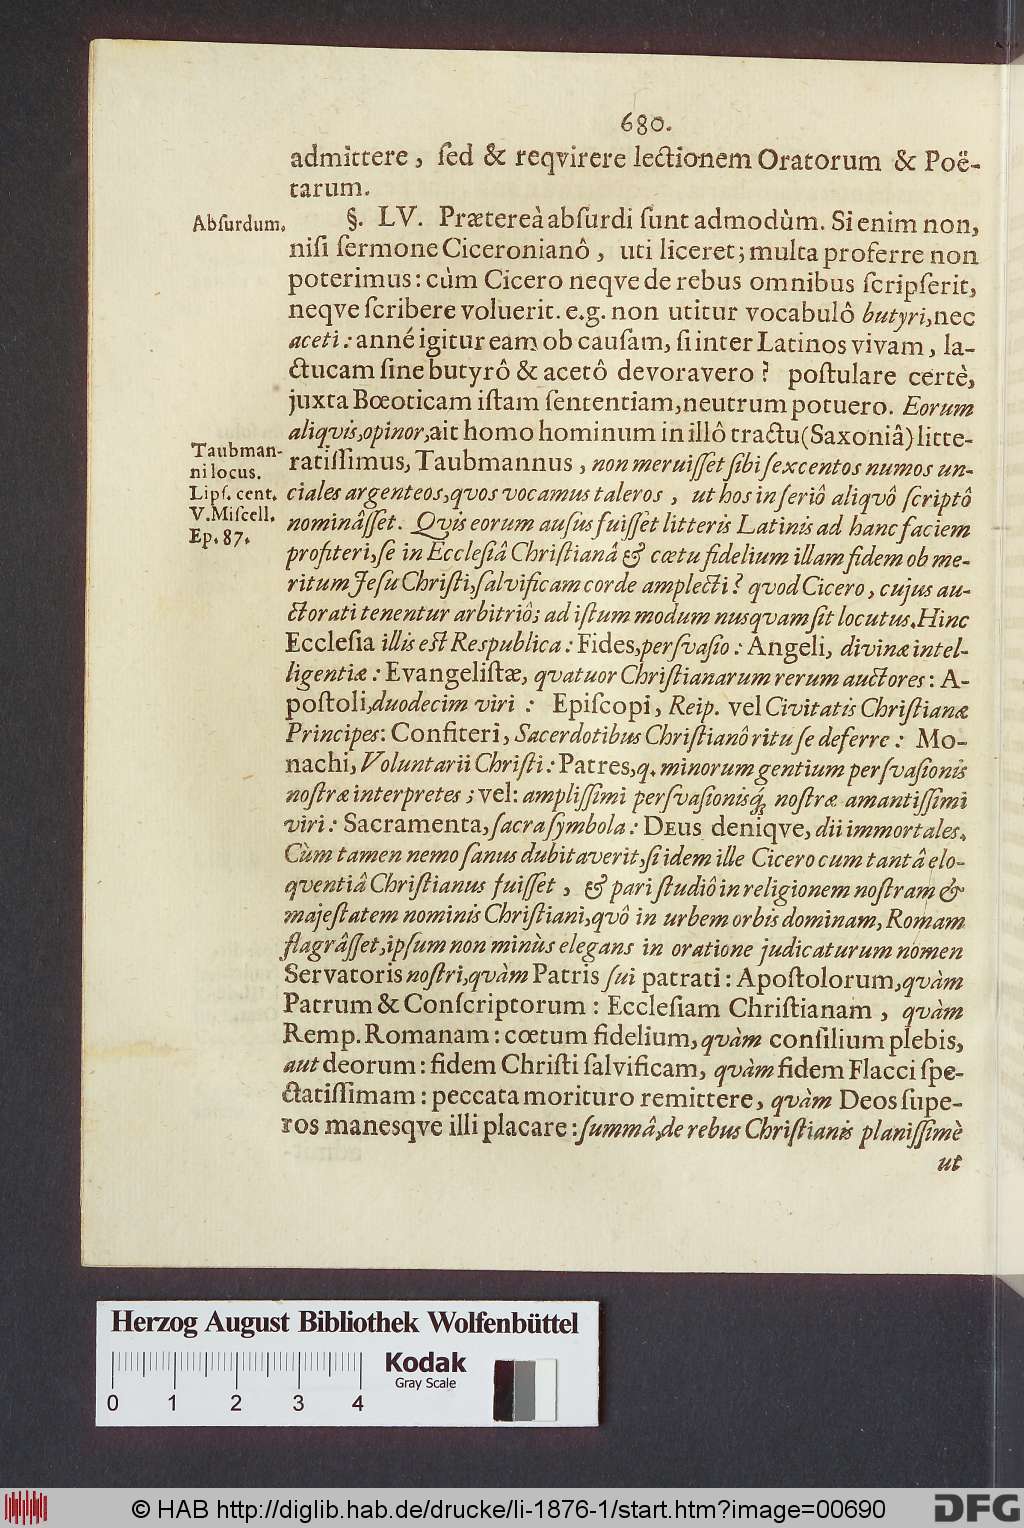 680.
admittere, ſed & reqvirere lectionem Oratorum & Poë-
tarum.
Abſurdum.
§. LV. Prætereà abſurdi ſunt admodùm. Si enim non,
niſi ſermone Ciceronianô, uti liceret; multa proferre non
poterimus: cùm Cicero neqve de rebus omnibus ſcripſerit,
neqve ſcribere voluerit. e.g. non utitur vocabulô butyri, nec
aceti: anné igitur eam ob cauſam, ſi inter Latinos vivam, la-
ctucam ſine butyrô & acetô devoravero? poſtulare certè,
juxta Bœoticam iſtam ſententiam, neutrum potuero. Eorum
aliqvis, opinor, ait homo hominum in illô tractu (Saxoniâ) litte-
Taubman-
ni locus.
Lipſ. cent.
V. Miſcell.
Ep. 87.
ratiſſimus, Taubmannus, non meruiſſet ſibi ſexcentos numos un-
ciales argenteos, qvos vocamus taleros, ut hos in ſeriô aliqvô ſcriptô
nominâſſet. Qvis eorum auſus fuiſſet litteris Latinis ad hanc faciem
profiteri, ſe in Eccleſiâ Chriſtianâ & cœtu fidelium illam fidem ob me-
ritum Jeſu Chriſti, ſalvificam corde amplecti? qvod Cicero, cujus au-
ctorati tenentur arbitriô; ad iſtum modum nusqvam ſit locutus. Hinc
Eccleſia illis eſt Respublica: Fides, perſvaſio: Angeli, divinæ intel-
ligentiæ: Evangeliſtæ, qvatuor Chriſtianarum rerum auctores: A-
poſtoli, duodecim viri: Epiſcopi, Reip. vel Civitatis Chriſtianæ
Principes: Confiteri, Sacerdotibus Chriſtianô ritu ſe deferre: Mo-
nachi, Voluntarii Chriſti: Patres, q. minorum gentium perſvaſionis
noſtræ interpretes; vel: ampliſſimi perſvaſionisq́; noſtræ amantiſſimi
viri: Sacramenta, ſacra ſymbola: DEus deniqve, dii immortales.
Cùm tamen nemo ſanus dubitaverit, ſi idem ille Cicero cum tantâ elo-
qventiâ Chriſtianus fuiſſet, & pari ſtudiô in religionem noſtram &
majeſtatem nominis Chriſtiani, qvô in urbem orbis dominam, Romam
flagrâſſet, ipſum non minùs elegans in oratione judicaturum nomen
Servatoris noſtri, qvàm Patris ſui patrati: Apoſtolorum, qvàm
Patrum & Conſcriptorum: Eccleſiam Chriſtianam, qvàm
Remp. Romanam: cœtum fidelium, qvàm conſilium plebis,
aut deorum: fidem Chriſti ſalvificam, qvàm fidem Flacci ſpe-
ctatiſſimam: peccata morituro remittere, qvàm Deos ſupe-
ros manesqve illi placare: ſummâ, de rebus Chriſtianis planiſſimè
ut
Herzog August Bibliothek Wolfenbüttel
Kodak
Gray Scale
0 1 2 3 4
© HAB http://diglib.hab.de/drucke/li-1876-1/start.htm?image=00690
DFG